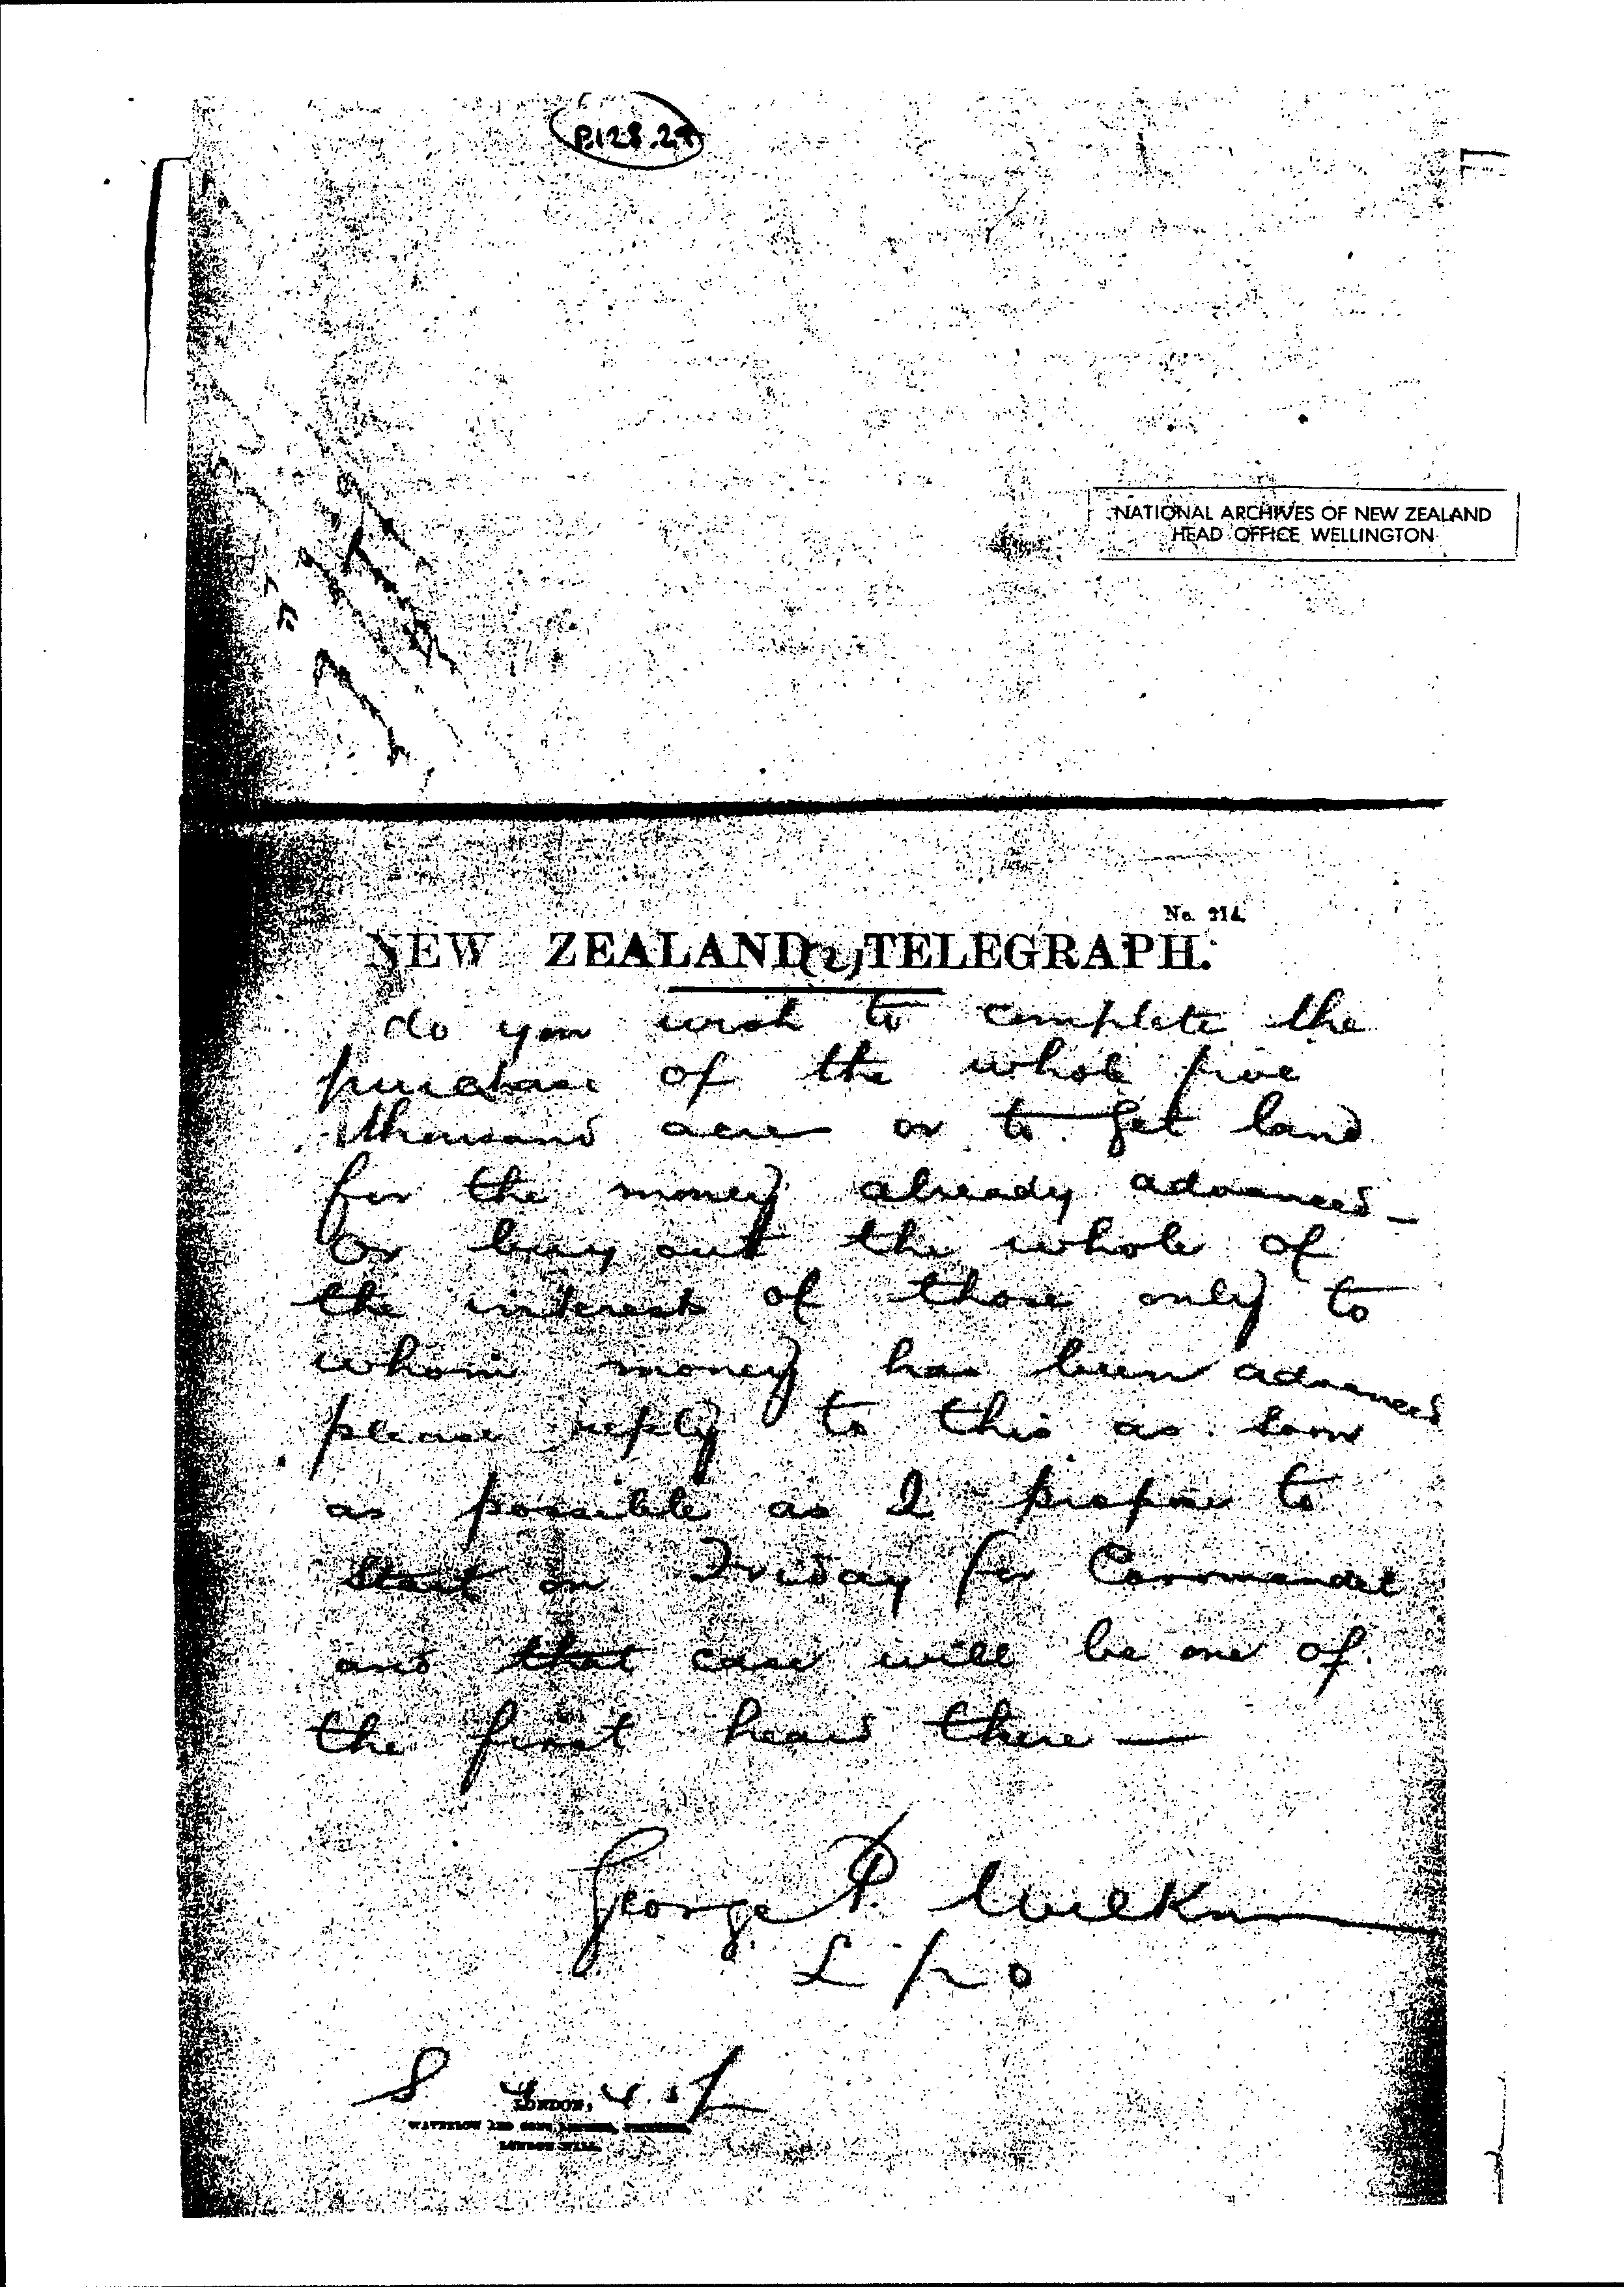 B128.29
NATIONAL ARCHIVES OF NEW ZEALAND
HEAD OFFICE WELLINGTON
No. 214.
NEW ZEALAND (2) TELEGRAPH.
do you wish to complete the
purchase of the whole five
thousand acres or to get land
for the money already advanced –
Or buy out the whole of
the interest of those only to
whom money has been advanced
please reply to this as soon
as possible as I propose to
start on Friday for Coromandel
and that case will be one of
the first heard there —
George P. Wilkinson
L P O
LONDON,
WATERLOW AND SONS LIMITED, PRINTERS,
LONDON WALL.